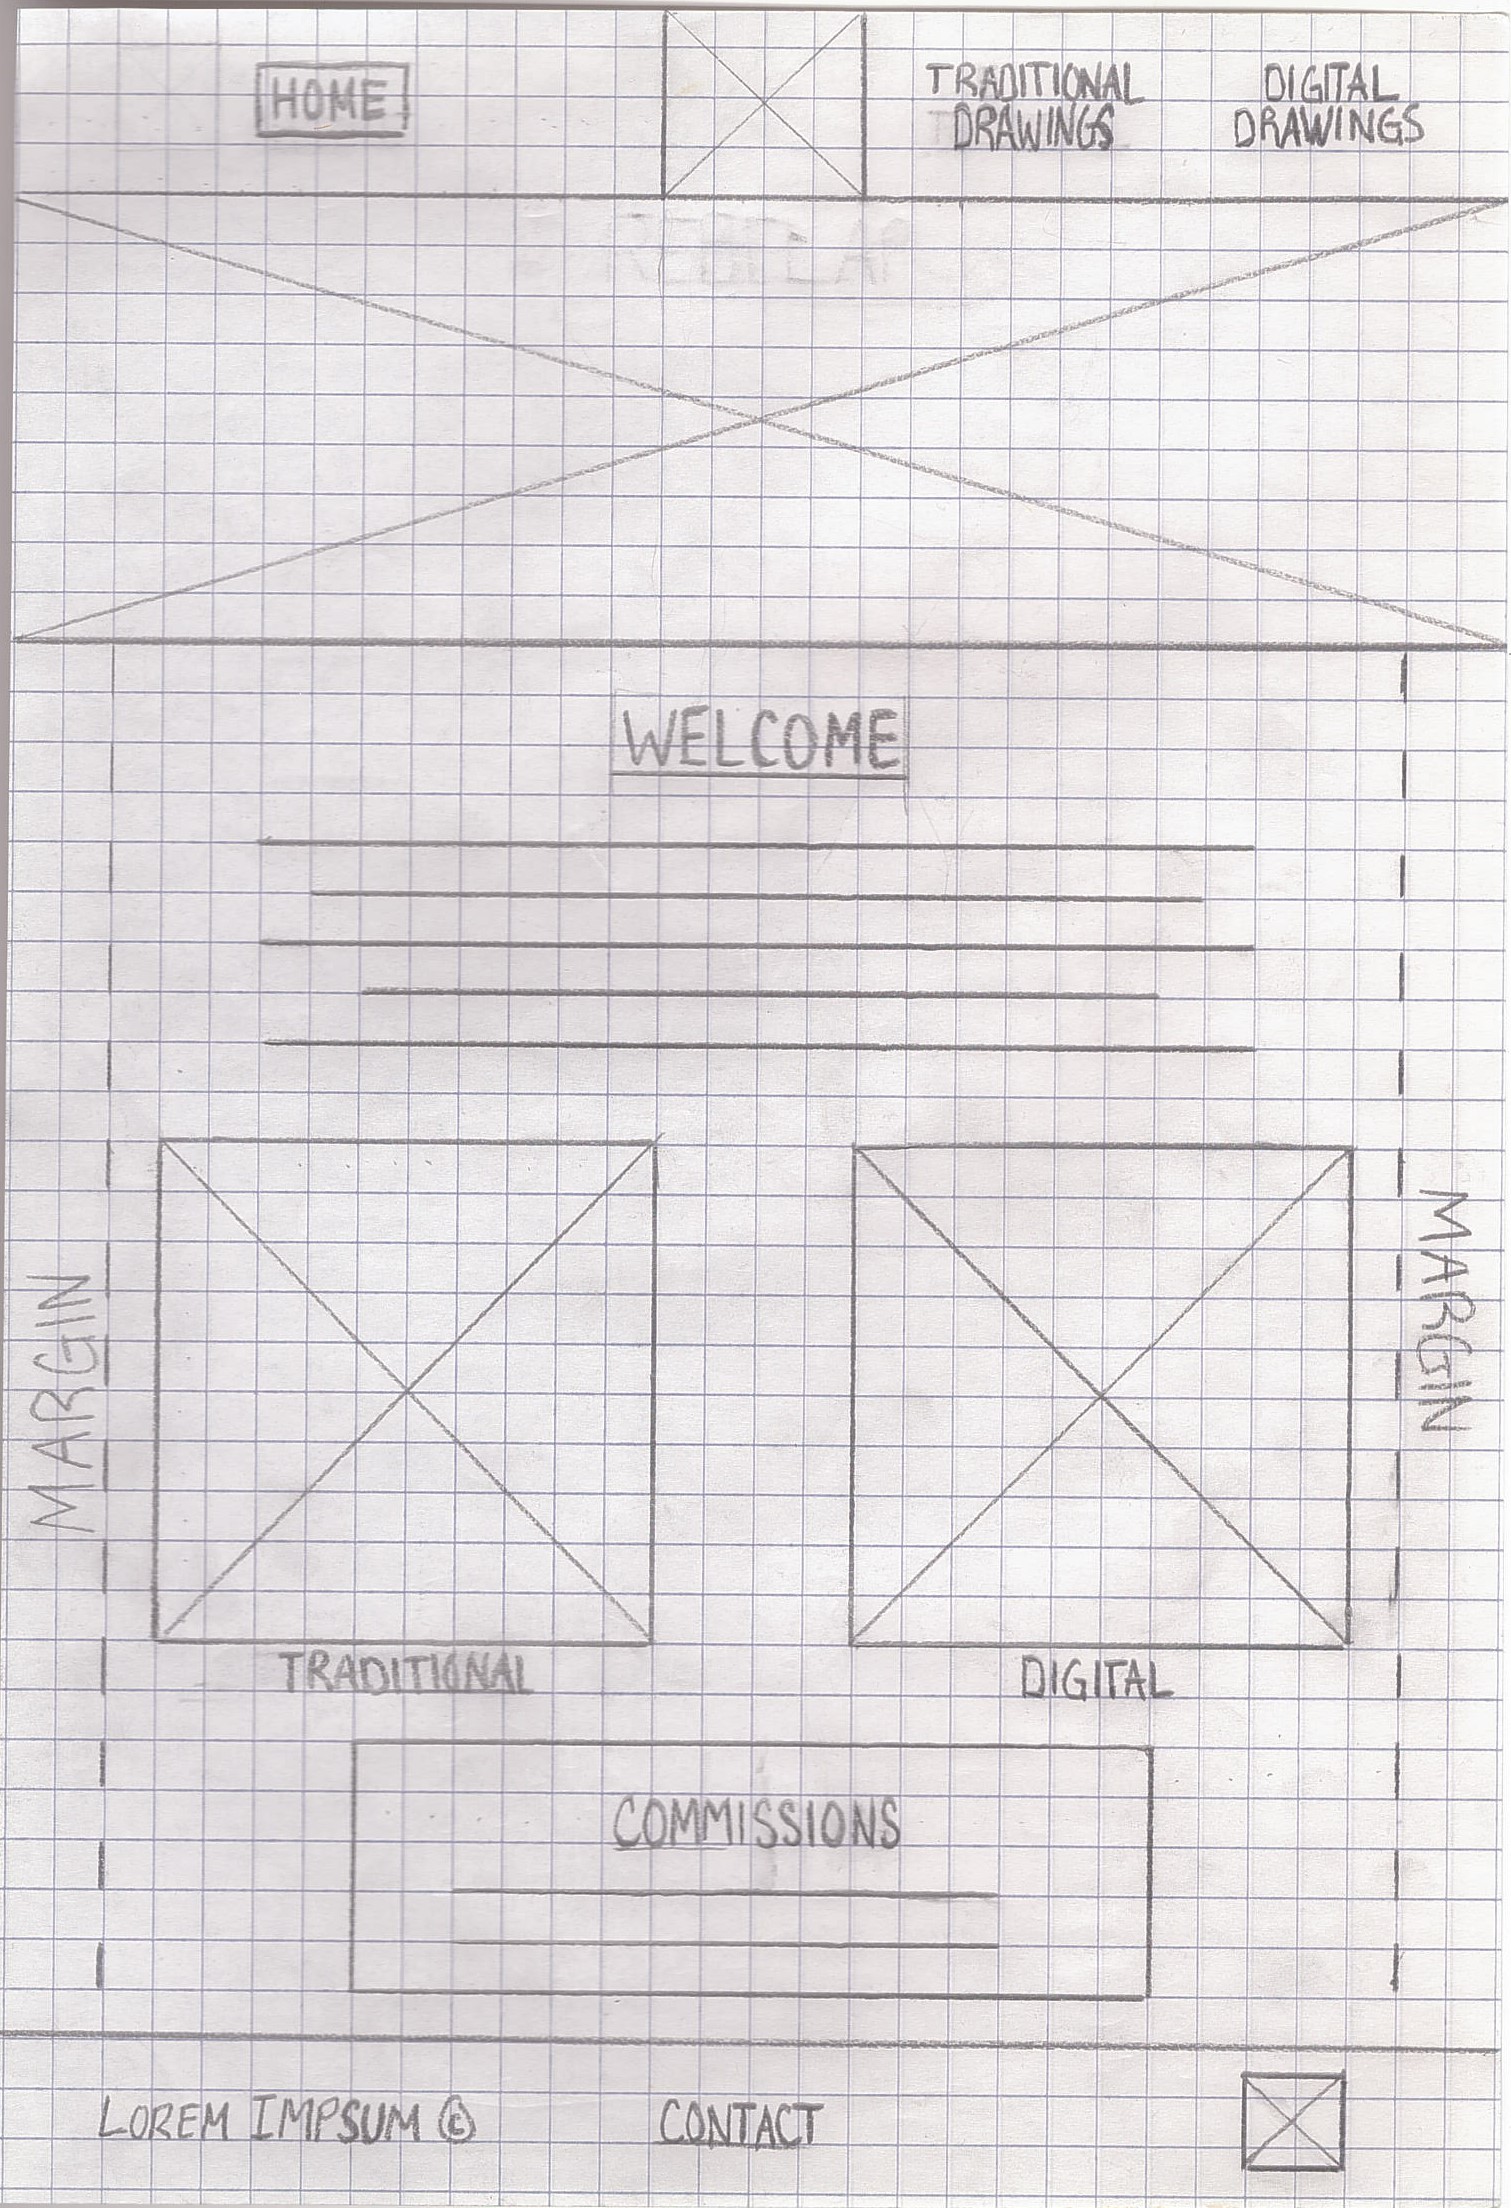 HOME
TRADITIONAL
DRAWINGS
DIGITAL
DRAWINGS
WELCOME
MARGIN
MARGIN
TRADITIONAL
DIGITAL
COMMISSIONS
LOREM IMPSUM ©
CONTACT